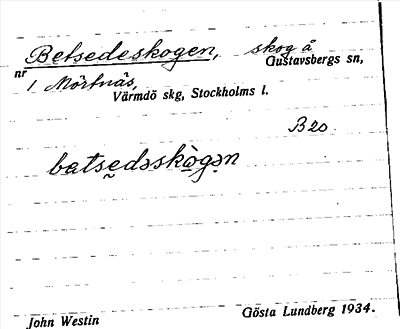 Betsedeskogen, skog å
nr Gustavsbergs sn,
1 Mörtnäs,
Värmdö skg, Stockholms l.
B20
batsedəskògən
John Westin Gösta Lundberg 1934.